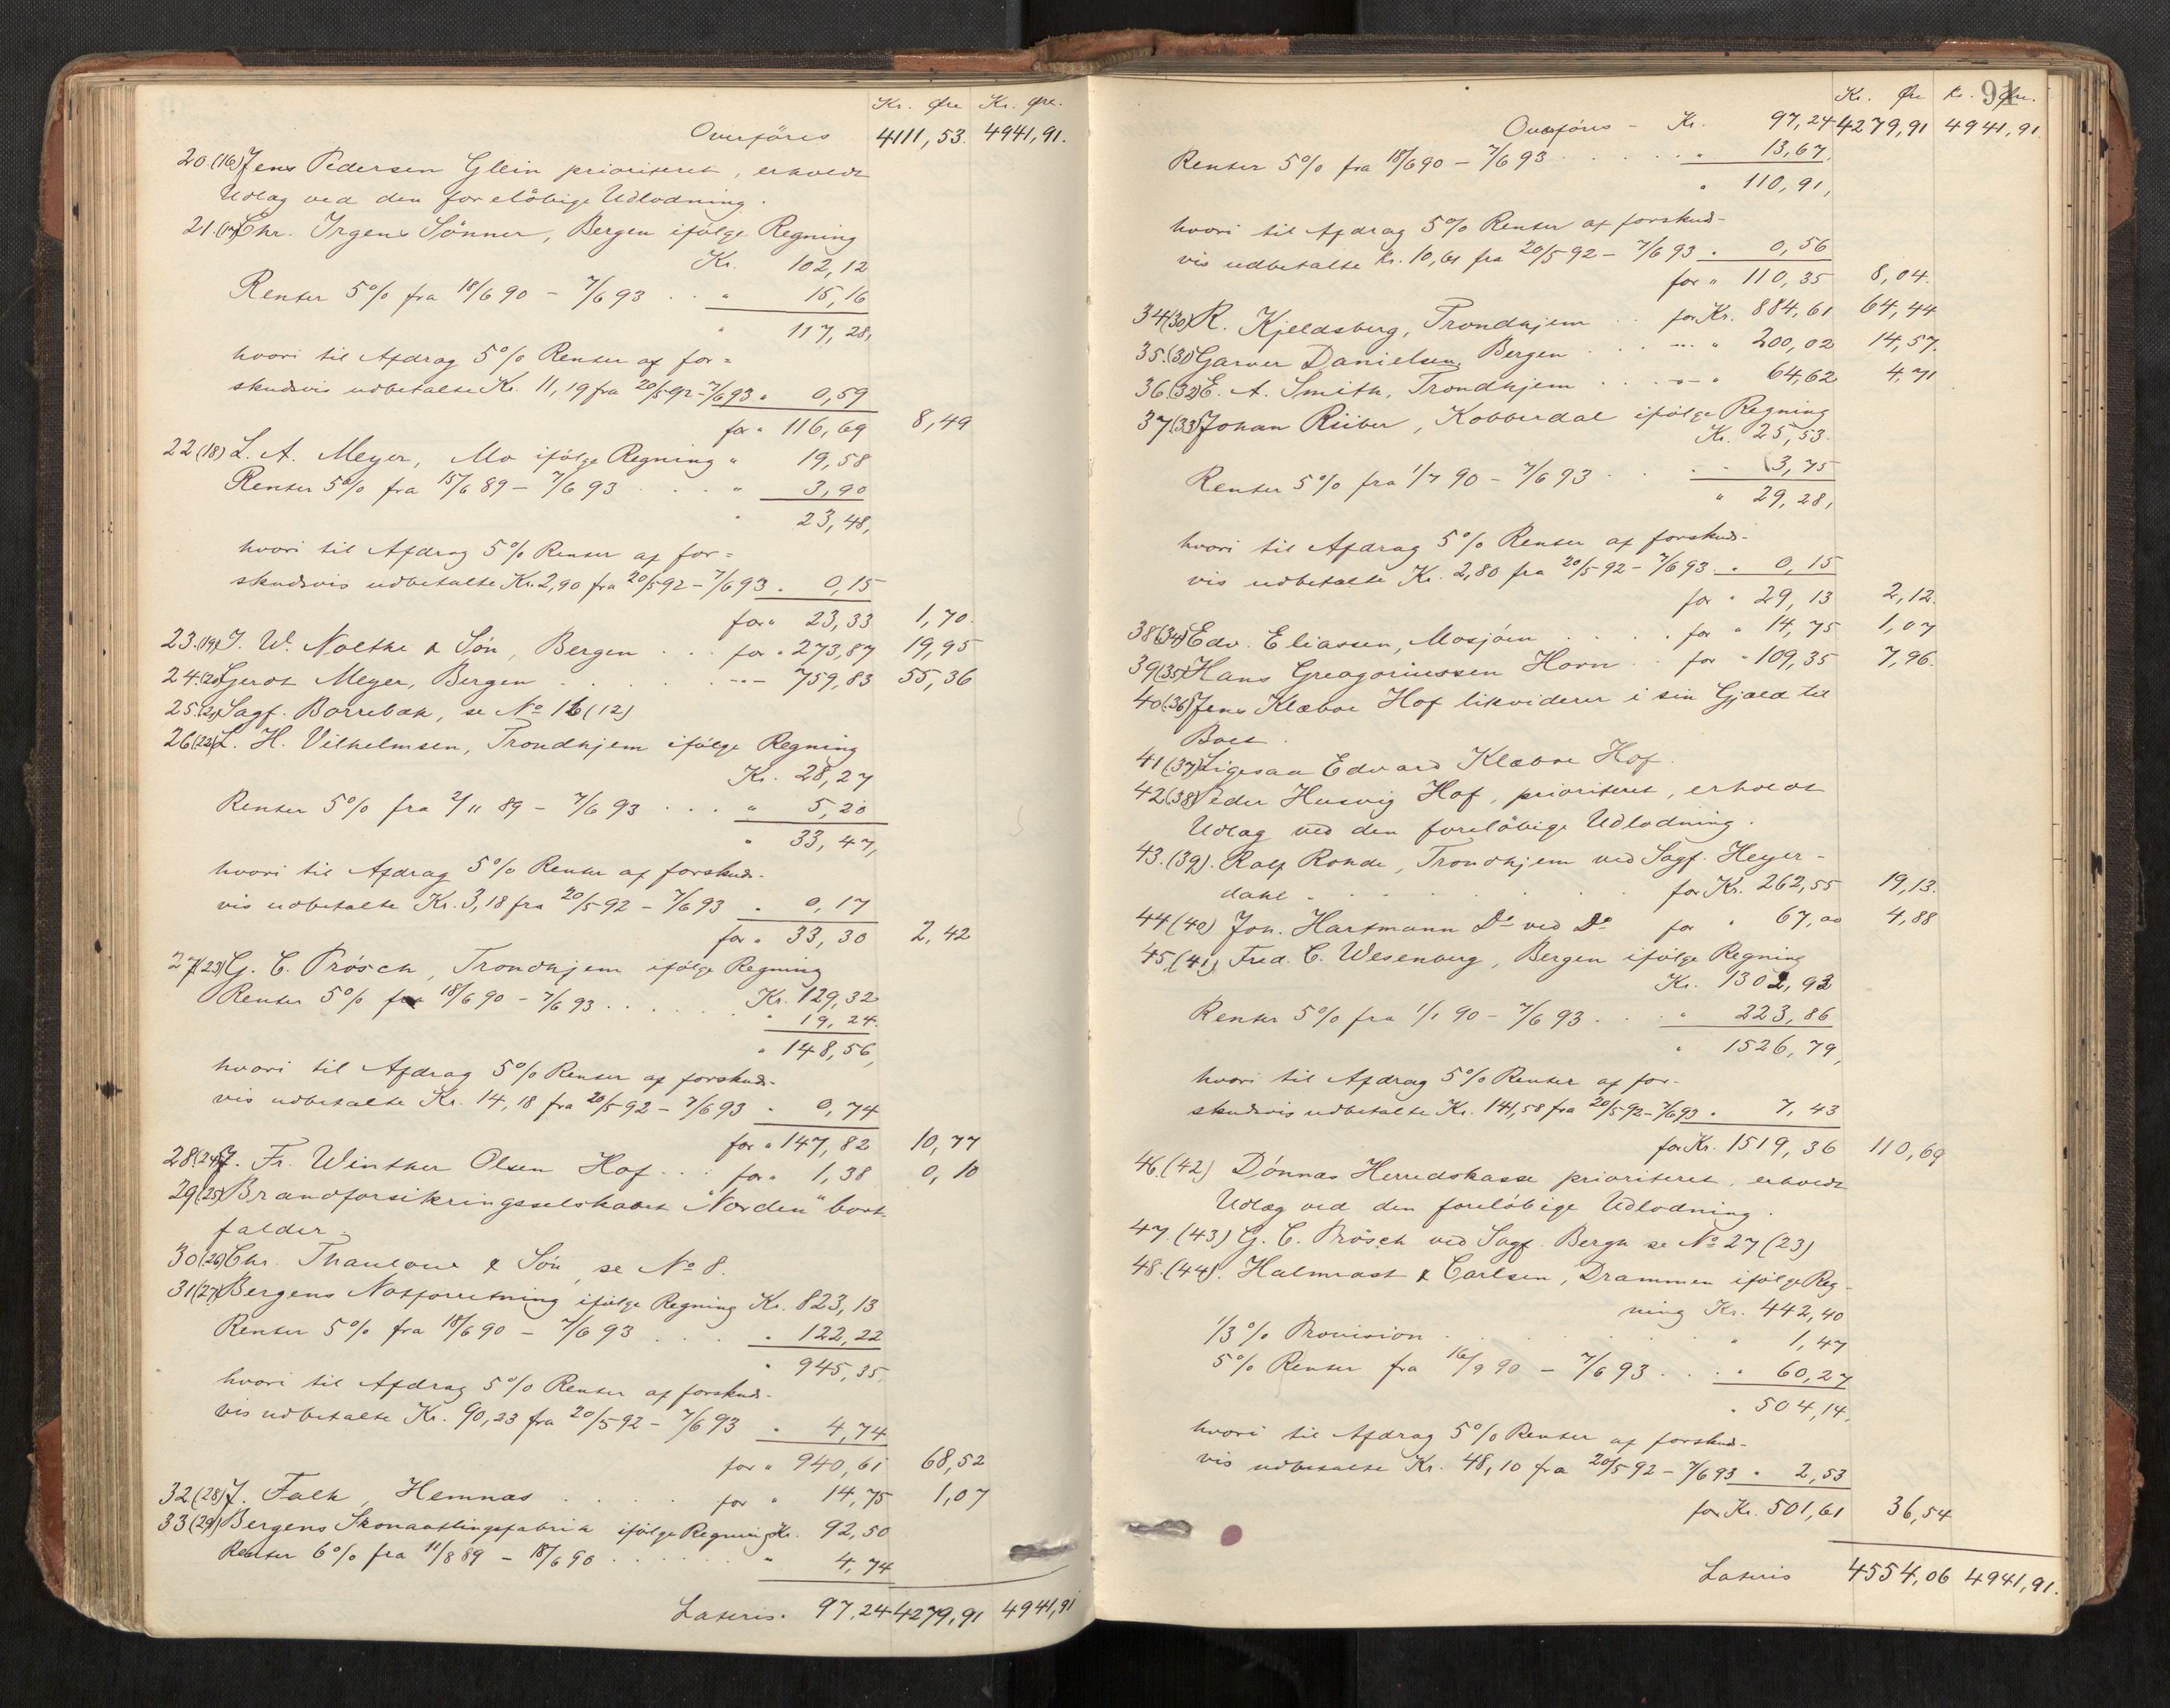 Kr. Øre Kr. Øre.
Overføres 4111,53. 4941,91.
20.(16) Jens Pedersen Glein prioriteret, erholdt
Udlæg ved den foreløbige Udlodning.
21.(17) Chr. Irgens Sønner, Bergen ifølge Regning
Kr. 102,12
Renter 5% fra 18/6 90 - 7/6 93 . . " 15,16
" 117,28,
hvori til Afdrag 5% Renter af for=
skudsvis udbetalte Kr. 11,19 fra 20/5 92 - 7/6 93 " 0,59
for " 116,69 8,49
22(18) L. A. Meyer, Mo ifølge Regning " 19,58
Renter 5% fra 15/6 89 - 7/6 93 . . . " 3,90
" 23,48,
hvori til Afdrag 5% Renter af for=
skudsvis udbetalte Kr. 2,90 fra 20/5 92 - 7/6 93 . 0,15
for " 23,33 1,70.
23.(19) J. W. Noltke & Søn, Bergen . . . for " 273,87 19,95
24.(20) Gerdt Meyer, Bergen . . . . . -"- 759,83 55,36
25.(21) Sagf. Borrebæk, se No 16 (12)
26(22) L. H. Vilhelmsen, Trondhjem ifølge Regning
Kr. 28,27
Renter 5% fra 2/11 89 - 7/6 93 . . . " 5,20
" 33,47,
hvori til Afdrag 5% Renter af forskuds-
vis udbetalte Kr. 3,18 fra 20/5 92 - 7/6 93 . 0,17
for " 33,30 2,42
27(23) G. C. Prösch, Trondhjem ifølge Regning
Kr. 129,32
Renter 5% fra 18/6 90 - 7/6 93 . . . . . " 19,24.
" 148,56,
hvori til Afdrag 5% Renter af forskuds-
vis udbetalte Kr. 14,18 fra 20/5 92 - 7/6 93 . 0,74
for " 147,82 10,77
28(24) J. Fr. Winther Olsen Hof . . . for " 1,38 0,10
29(25) Brandforsikringsselskabet "Norden" bort-
falder.
30(26) Chr. Thaulow & Søn, se No 8.
31(27) Bergens Notforretning ifølge Regning Kr. 823,13
Renter 5% fra 18/6 90 - 7/6 93 . . . . " 122,22
" 945,35.
hvori til Afdrag 5% Renter af forskuds-
vis udbetalte Kr. 90,23 fra 20/5 92 - 7/6 93 . 4,74
for " 940,61 68,52
32.(28) J. Falch, Hemnæs . . . . . for " 14,75 1,07
33(29) Bergens Skonaatlingsfabrik ifølge Regning Kr. 92,50
Renter 6% fra 11/8 89 - 18/6 90 . . . . . " 4,74
Lateris. 97,24 4279,91 4941,91
91
Kr. Øre Kr. Øre.
Overføres - Kr. 97,24 4279,91 4941,91.
Renter 5% fra 18/6 90 - 7/6 93 . . . . . " 13,67.
" 110,91,
hvori til Afdrag 5% Renter af forskud-
vis udbetalte Kr. 10,61 fra 20/5 92 - 7/6 93 . 0,56
for " 110,35 8,04.
34(30) R. Kjeldsberg, Trondhjem . . for Kr. 884,61 64,44
35.(31) Garver Danielsen, Bergen . . . -"- " 200,02 14,57.
36.(32) E. A. Smith, Trondhjem . . . . -"- " 64,62 4,71
37(33) Johan Rüber, Kobberdal ifølge Regning
Kr. 25,53.
Renter 5% fra 1/7 90 - 7/6 93 . . . . 3,75
" 29,28,
hvori til Afdrag 5% Renter af forskuds-
vis udbetalte Kr. 2,80 fra 20/5 92 - 7/6 93 . 0,15
for " 29,13 2,12.
38(34) Edv. Eliassen, Mosjøen . . . . for " 14,75 1,07
39(35) Hans Greagoriussen Horn . . for " 109,35 7,96.
40(36) Jens Klæboe Hof likviderer i sin Gjæld til
Boet.
41(37) Ligesaa Edvard Klæboe Hof.
42(38) Peder Husvig Hof, prioriteret, erholdt
Udlæg ved den foreløbige Udlodning.
43.(39). Ralf Rohde, Trondhjem ved Sagf. Heyer-
dahl . . . . . . . for Kr. 262,55 19,13.
44(40) Joh. Hartmann Do ved Do for " 67,00 4,88
45.(41) Fred. C. Wesenberg, Bergen ifølge Regning
Kr. 1302,93
Renter 5% fra 1/1 90 - 7/6 93 . . . " 223,86
" 1526,79,
hvori til Afdrag 5% Renter af for-
skudsvis udbetalte Kr. 141,58 fra 20/5 92 - 7/6 93 . 7,43
for Kr. 1519,36 110,69
46.(42) Dønnæs Herredskasse prioriteret, erholdt
Udlæg ved den foreløbige Udlodning.
47.(43) G. C. Prösch ved Sagf. Bergh se No 27 (23)
48.(44). Halmrast & Carlsen, Drammen ifølge Reg-
ning Kr. 442,40
1/3% Provision . . . . . . " 1,47
5% Renter fra 16/9 90 - 7/6 93 . . . " 60,27
" 504,14.
hvori til Afdrag 5% Renter af forskud-
vis udbetalte Kr. 48,10 fra 20/5 92 - 7/6 93 . 2,53
for Kr. 501,61 36,54
Lateris 4554,06 4941,91.